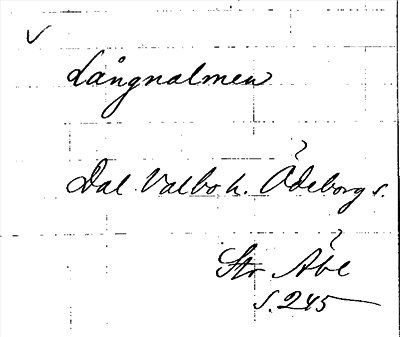 Långnalmen
Dal. Valbo h. Ödeborg s.
Str Åbl
s. 245